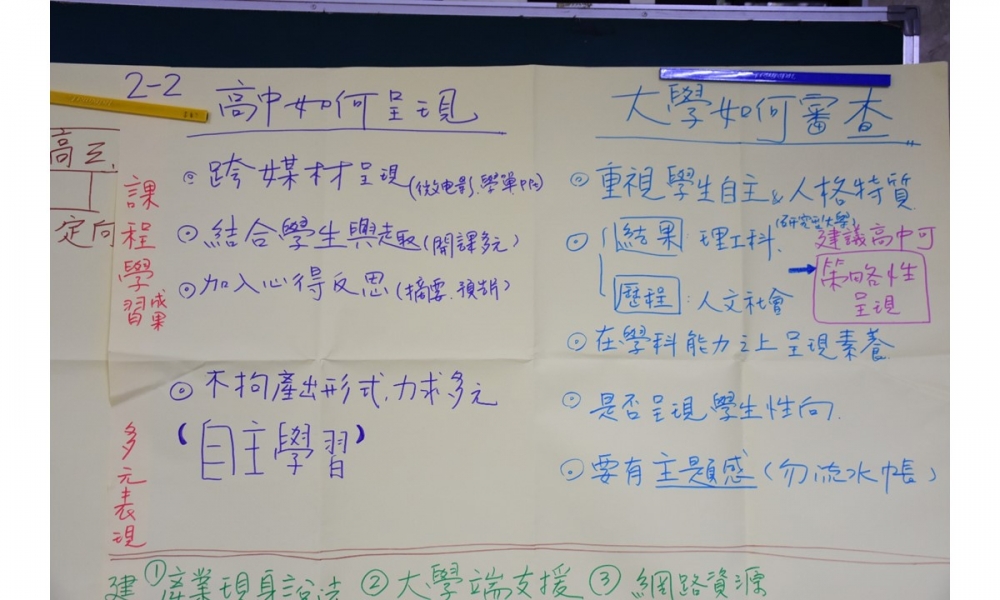 2-2
高中如何呈現
大學如何審查
高三、
定向
課程學習成果
◎ 跨媒材呈現(微電影.學單.PPt)
◎ 結合學生興趣(開課多元)
◎ 加入心得反思(摘要.預期)
◎ 重視學生自主&人格特質
◎ 結果 理工科、(研究型大學)
歷程:人文社會
建議高中可
策略性
呈現
◎ 在學科能力之上呈現素養
多元表現
◎ 不拘產出形式,力求多元
(自主學習)
◎ 是否呈現學生性向.
◎ 要有主題感(勿流水帳)
建 ①產業現身說法 ②大學端支援 ③網路資源